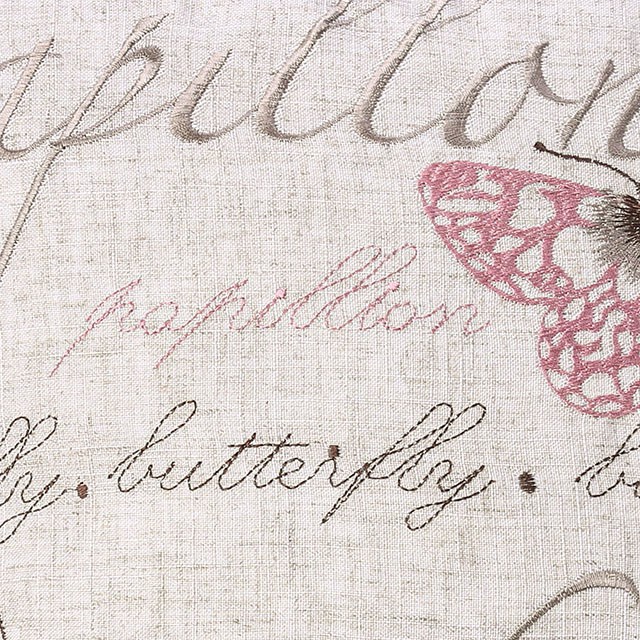 apillon
papillon
ly. butterfly . b